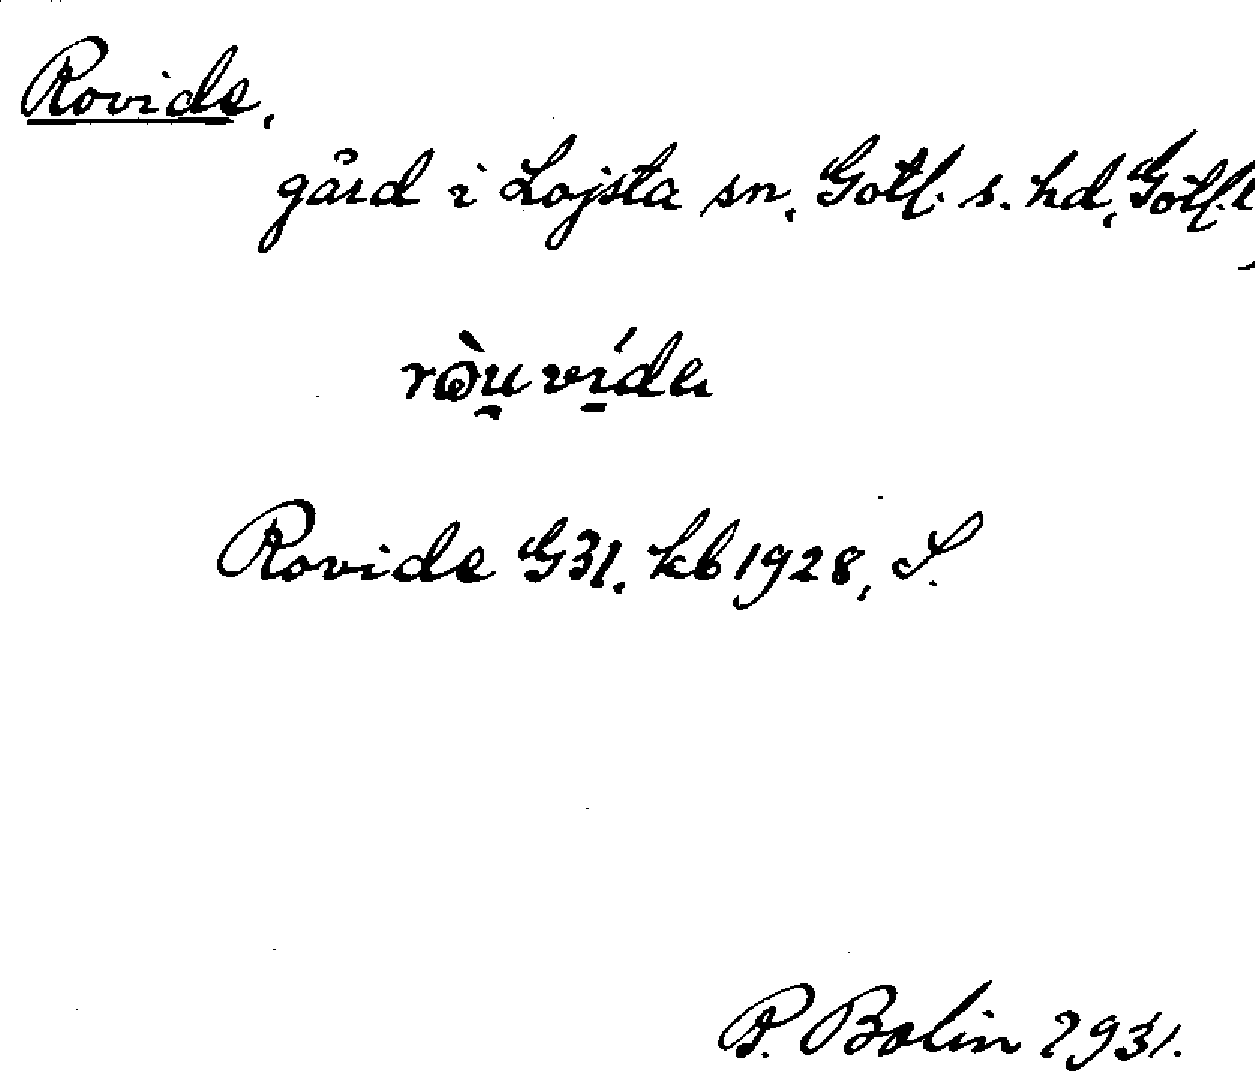 Rovide,
gård i Lojsta sn, Gotl. s. hd, Gotl. l
ròu̯ víde
Rovide G31. kb 1928, S.
P. Bolin 1931.